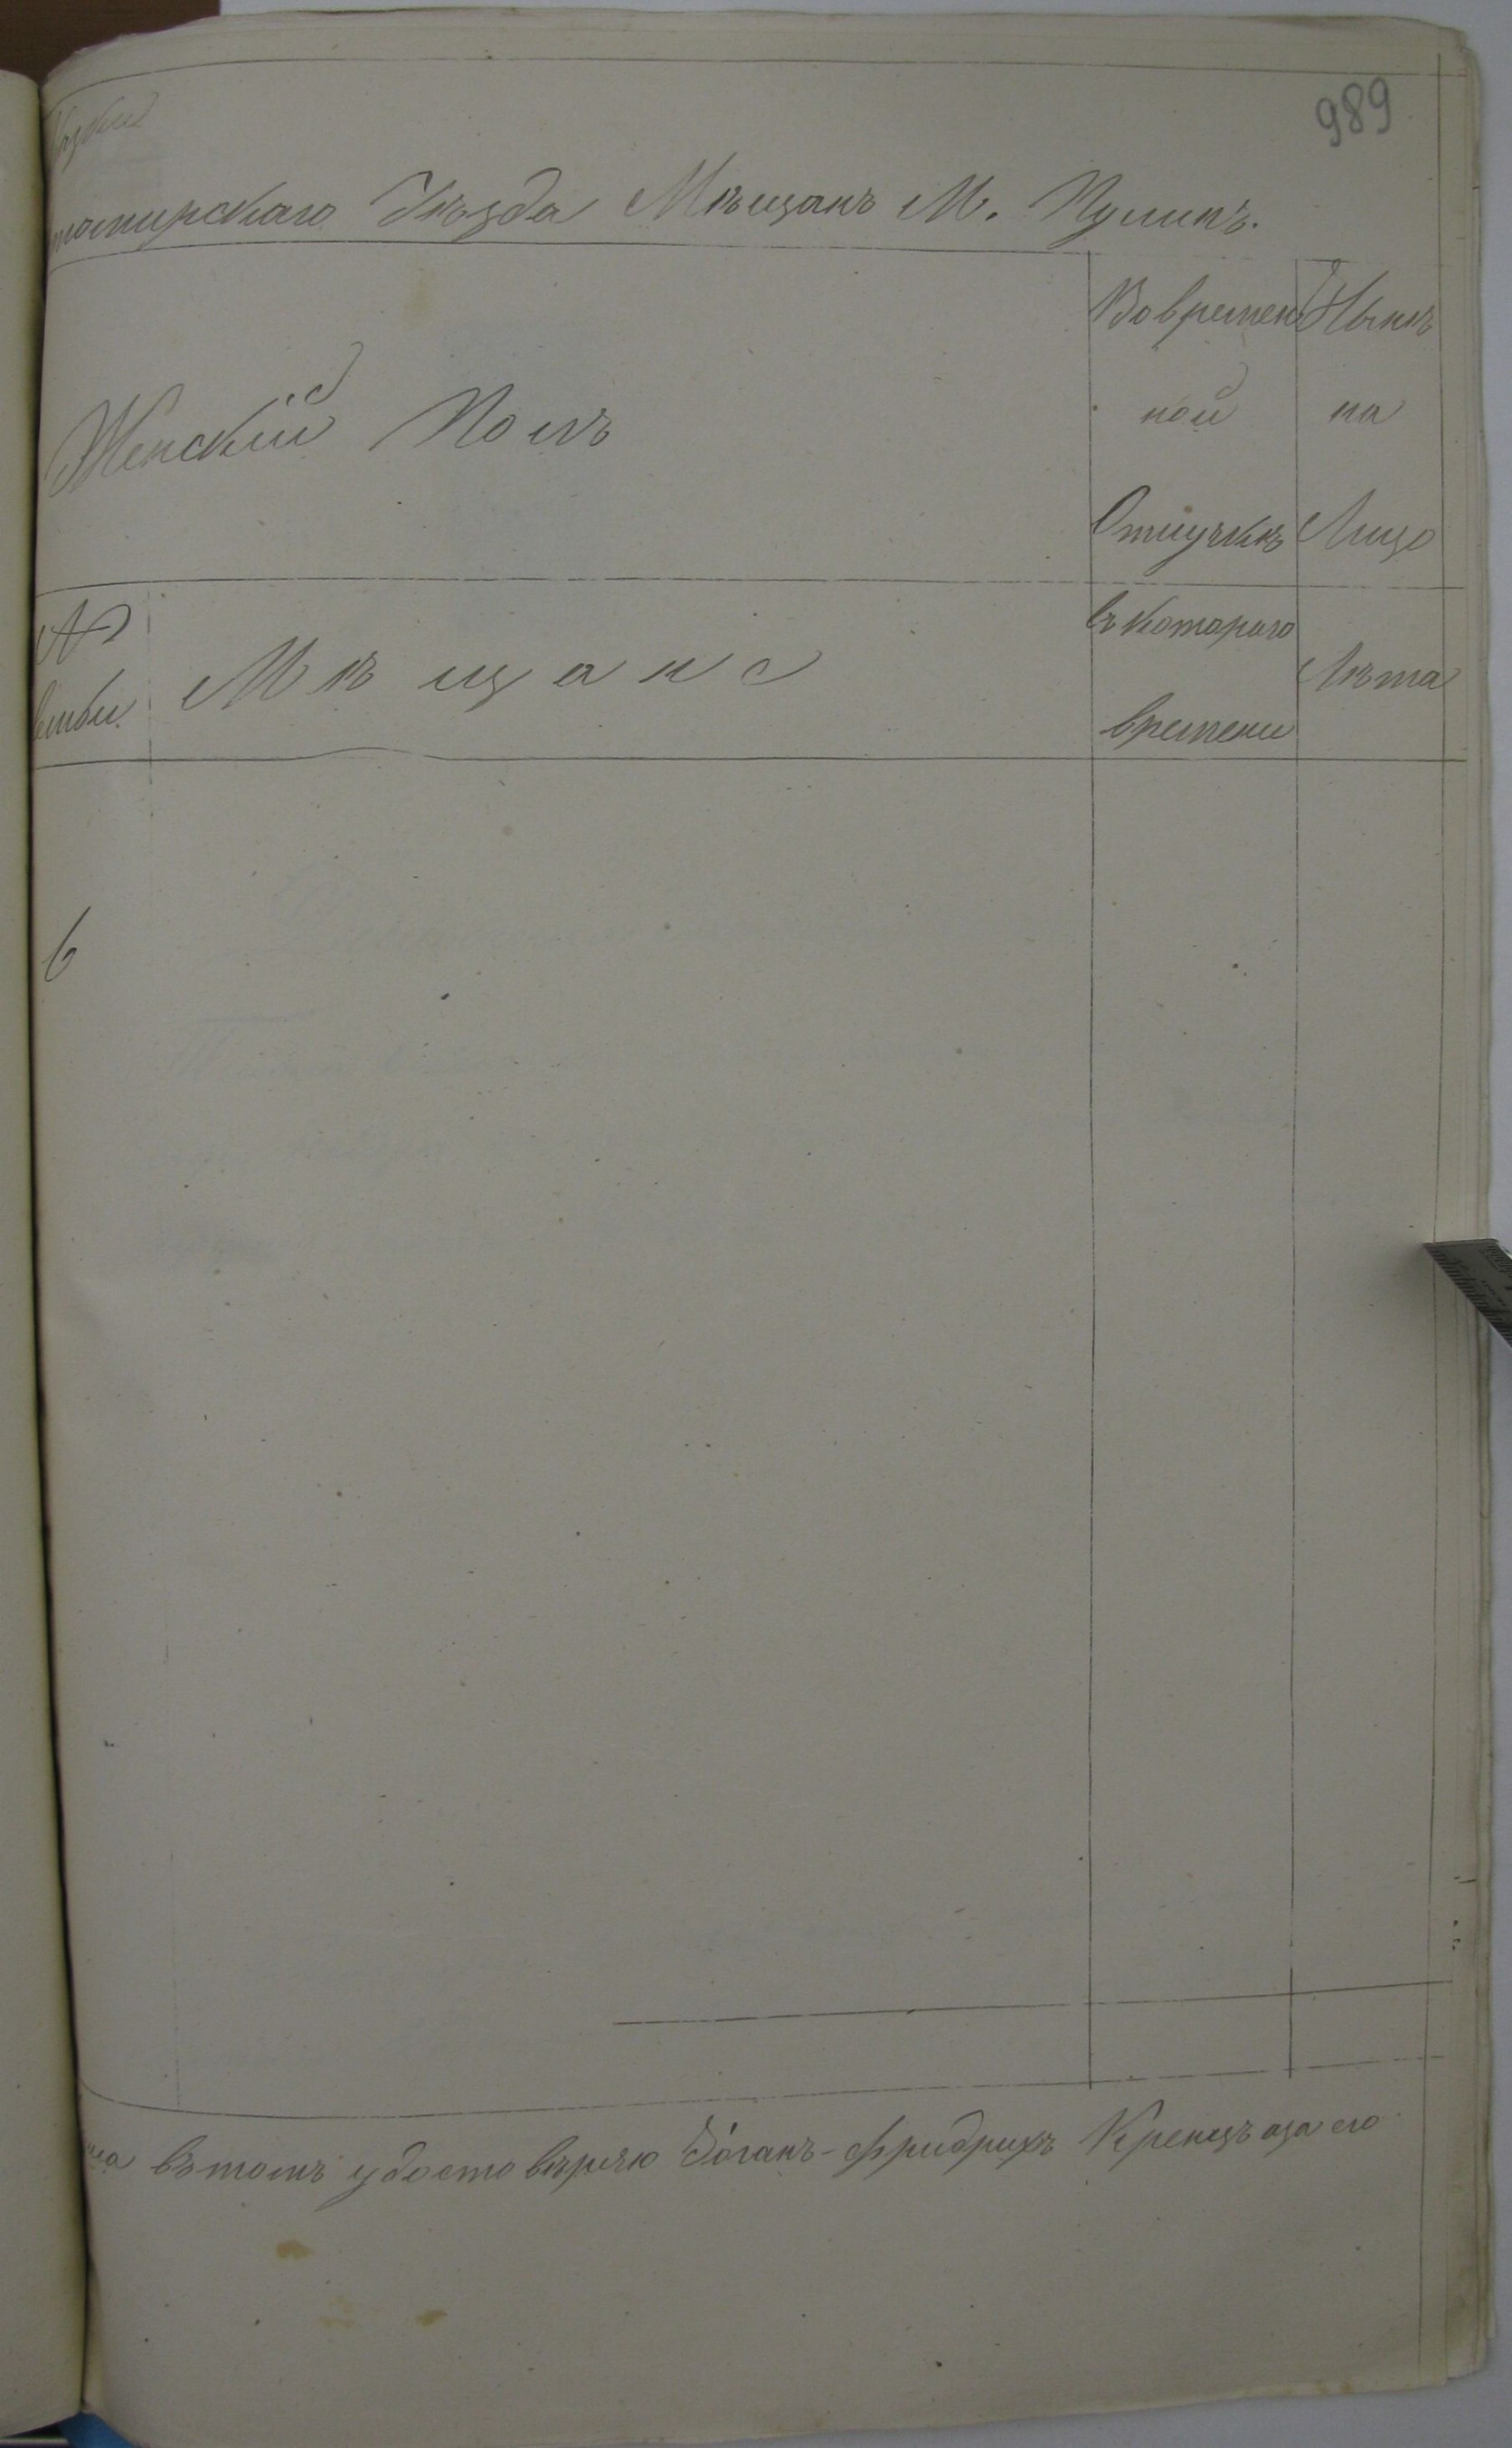 989
Уѣзда Мѣщанъ М. Пулинъ.
Женскій Полъ
Вовремен
ной
Отлучкѣ
Нынѣ
на
Лицо
№
Мѣщане
съ котораго
времени
Лѣта
6
въ томъ удостовѣряю Іоганъ-Фридрихъ Кренцъ аза его